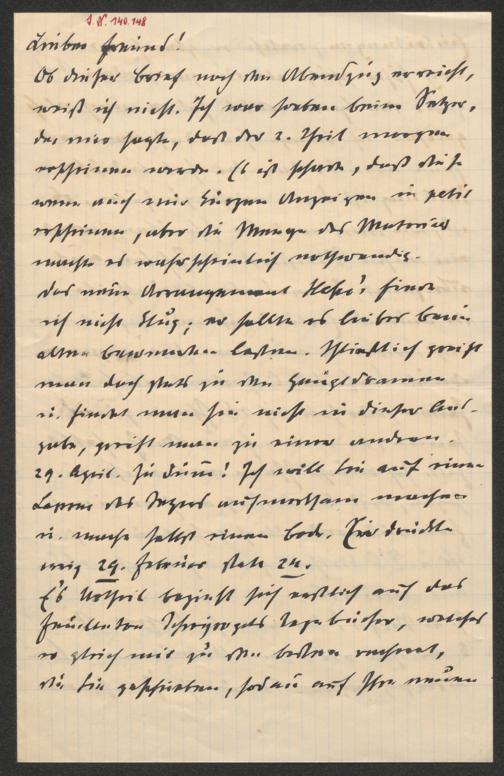 I. N. 140.148
Lieber Freund!
Ob dieser Brief noch den Abendzug erreicht,
weiß ich nicht. Ich war soeben beim Setzer,
der mir sagte, daß der 2. Theil morgen
erscheinen werde. Es ist schade, daß diese
wenn auch nur kurzen Anzeigen in petit
erscheinen, aber die Menge des Materials
machte es wahrscheinlich nothwendig.
Das neue Arrangement Hesse's finde
ich nicht klug; er sollte es lieber beim
alten bewenden lassen. Schließlich greift
man doch stets zu den Hauptdramen
u. findet man sie nicht in dieser Aus-
gabe, greift man zu einer andren.
29. April. Zu dumm! Ich will Sie auf einen
Lapsus des Setzers aufmerksam machen
u. mache selbst einen Bock. Hier druckte
man 29. Februar statt 24.
Urtheil bezieht sich erstlich auf das
Feuilleton Schreyvogels Tagebücher, welches
er gleich mir zu den besten rechnet,
die Sie geschrieben, sodann auf Ihre neuen